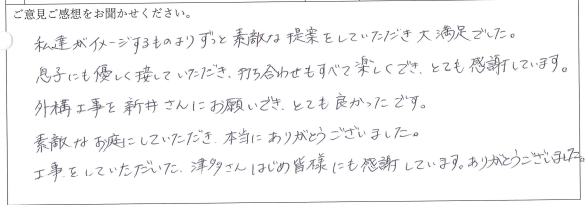 ご意見ご感想をお聞かせください。
私達がイメージするものよりずっと素敵な提案をしていただき大満足でした。
息子にも優しく接していただき、打ち合わせもすべて楽しくでき、とても感謝しています。
外構工事を新井さんにお願いでき、とても良かったです。
素敵なお庭にしていただき、本当にありがとうございました。
工事をしていただいた、津多さんはじめ皆様にも感謝しています。ありがとうございました。